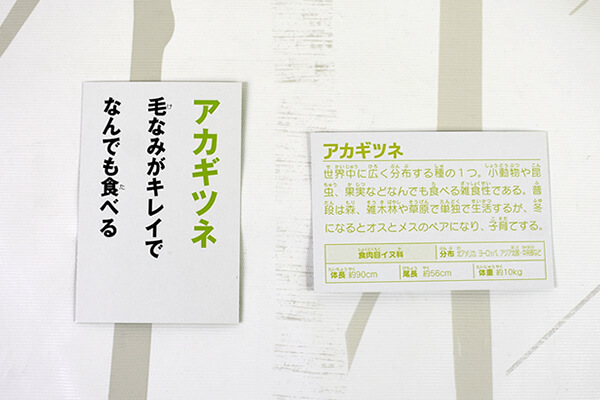 アカギツネ
毛なみがキレイで
なんでも食べる
アカギツネ
世界中に広く分布する種の1つ。小動物や昆
虫、果実などなんでも食べる雑食性である。普
段は森、雑木林や草原で単独で生活するが、冬
になるとオスとメスのペアになり、子育てする。
食肉目イヌ科 分布 北アメリカ、ヨーロッパ、アジア北部・中央部など
体長 約90cm 尾長 約56cm 体重 約10kg